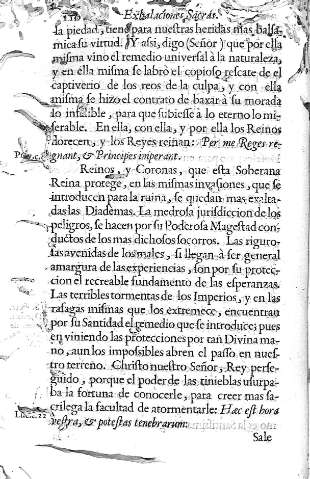 Exhalaciones Sacras.
la piedad, tiene para nuestras heridas mas balsa-
mica su virtud. Y assi, digo (Señor) que por ella
misma vino el remedio universal à la naturaleza,
y en ella misma se labrò el copioso rescate de el
captiverio de los reos de la culpa, y con ella
misma se hizo el contrato de baxar à su morada
lo infalible, para que subiesse à lo eterno lo mi-
serable. En ella, con ella, y por ella los Reinos
florecen, y los Reyes reinan: Per me Reges re-
gnant, & Principes imperant.
Reinos, y Coronas, que esta Soberana
Reina protege, en las mismas invasiones, que se
introducen para la ruina, se quedan mas exalta-
das las Diademas. La medrosa jurisdiccion de los
peligros, se hacen por su Poderosa Magestad con-
ductos de los mas dichosos socorros. Las riguro-
sas avenidas de los males, si llegan à ser general
amargura de las experiencias, son por su protec-
cion el recreable fundamento de las esperanzas.
Las terribles tormentas de los Imperios, y en las
rafagas mismas que los extremece, encuentran
por su Santidad el remedio que se introduce; pues
en viniendo las protecciones por tan Divina ma-
no, aun los impossibles abren el passo en nues-
tro terreno. Christo nuestro Señor, Rey perse-
guido, porque el poder de las tinieblas usurpa-
ba la fortuna de conocerle, para creer mas sa-
crilega la facultad de atormentarle: Hæc est hora
vestra, & potestas tenebrarum.
Sale